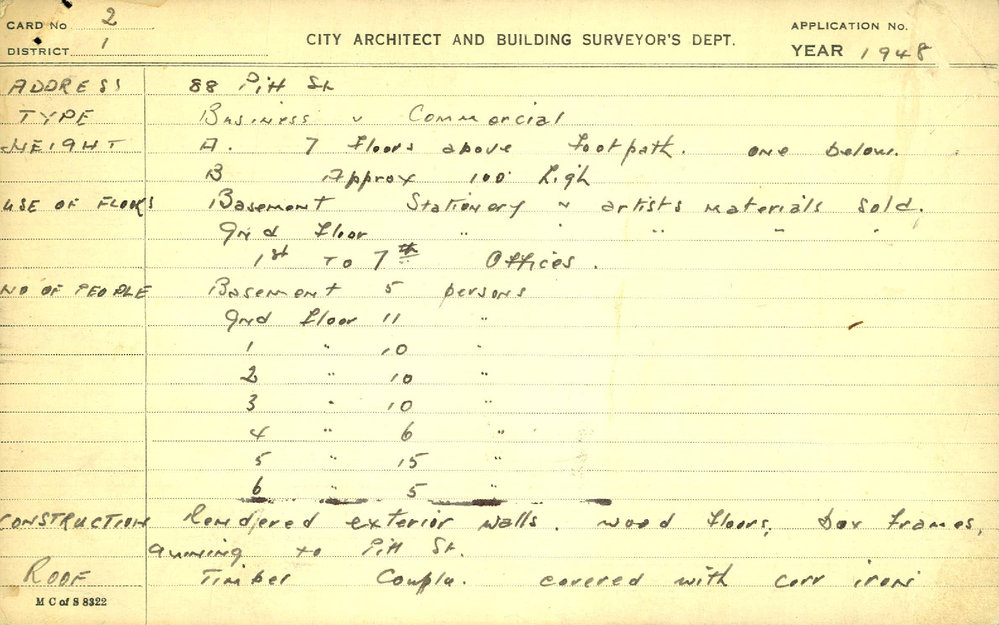 CARD No 2
DISTRICT 1
CITY ARCHITECT AND BUILDING SURVEYOR'S DEPT.
APPLICATION No.
YEAR 1948
ADDRESS 88 Pitt St
TYPE Business & Commercial
HEIGHT A. 7 floors above footpath. one below.
B Approx 100' high
USE OF FLOORS Basement Stationery & artists materials sold.
Gnd floor " " " " "
1st to 7th Offices.
NO OF PEOPLE Basement 5 persons
Gnd floor 11 "
1 " 10 "
2 " 10 "
3 " 10 "
4 " 6 "
5 " 15 "
6 " 5 "
CONSTRUCTION Rendered exterior walls. wood floors, box frames,
awning to Pitt St.
ROOF Timber covered with corr iron
M C of S 8322